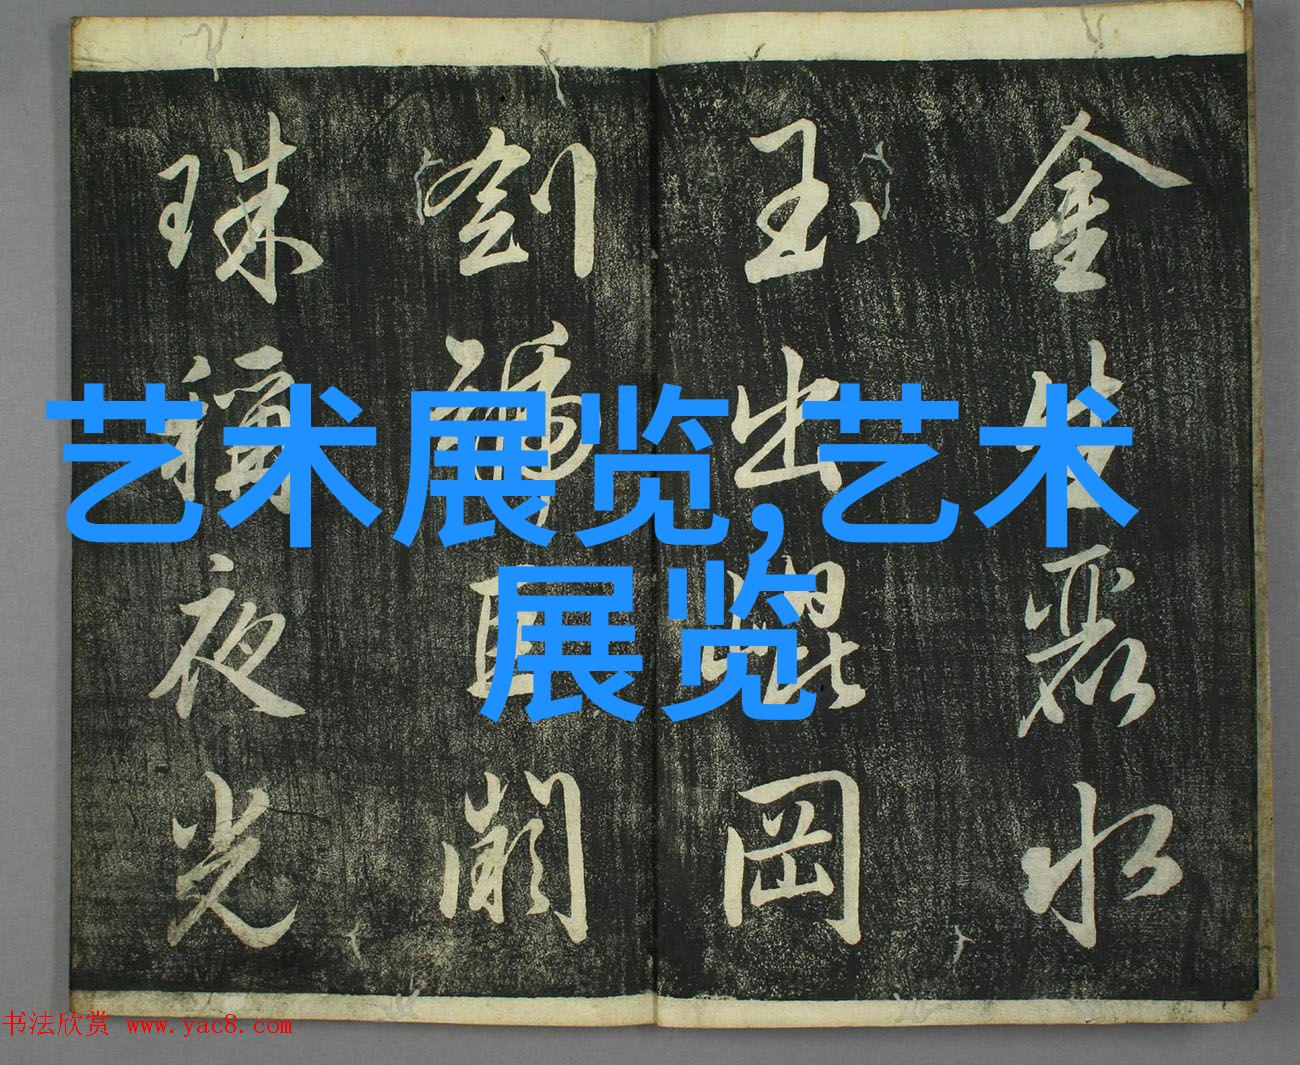 金生麗水
玉出崐岡
劍號巨闕
珠稱夜光
艺术展览,艺术
展览
书法欣赏 www.yac8.com